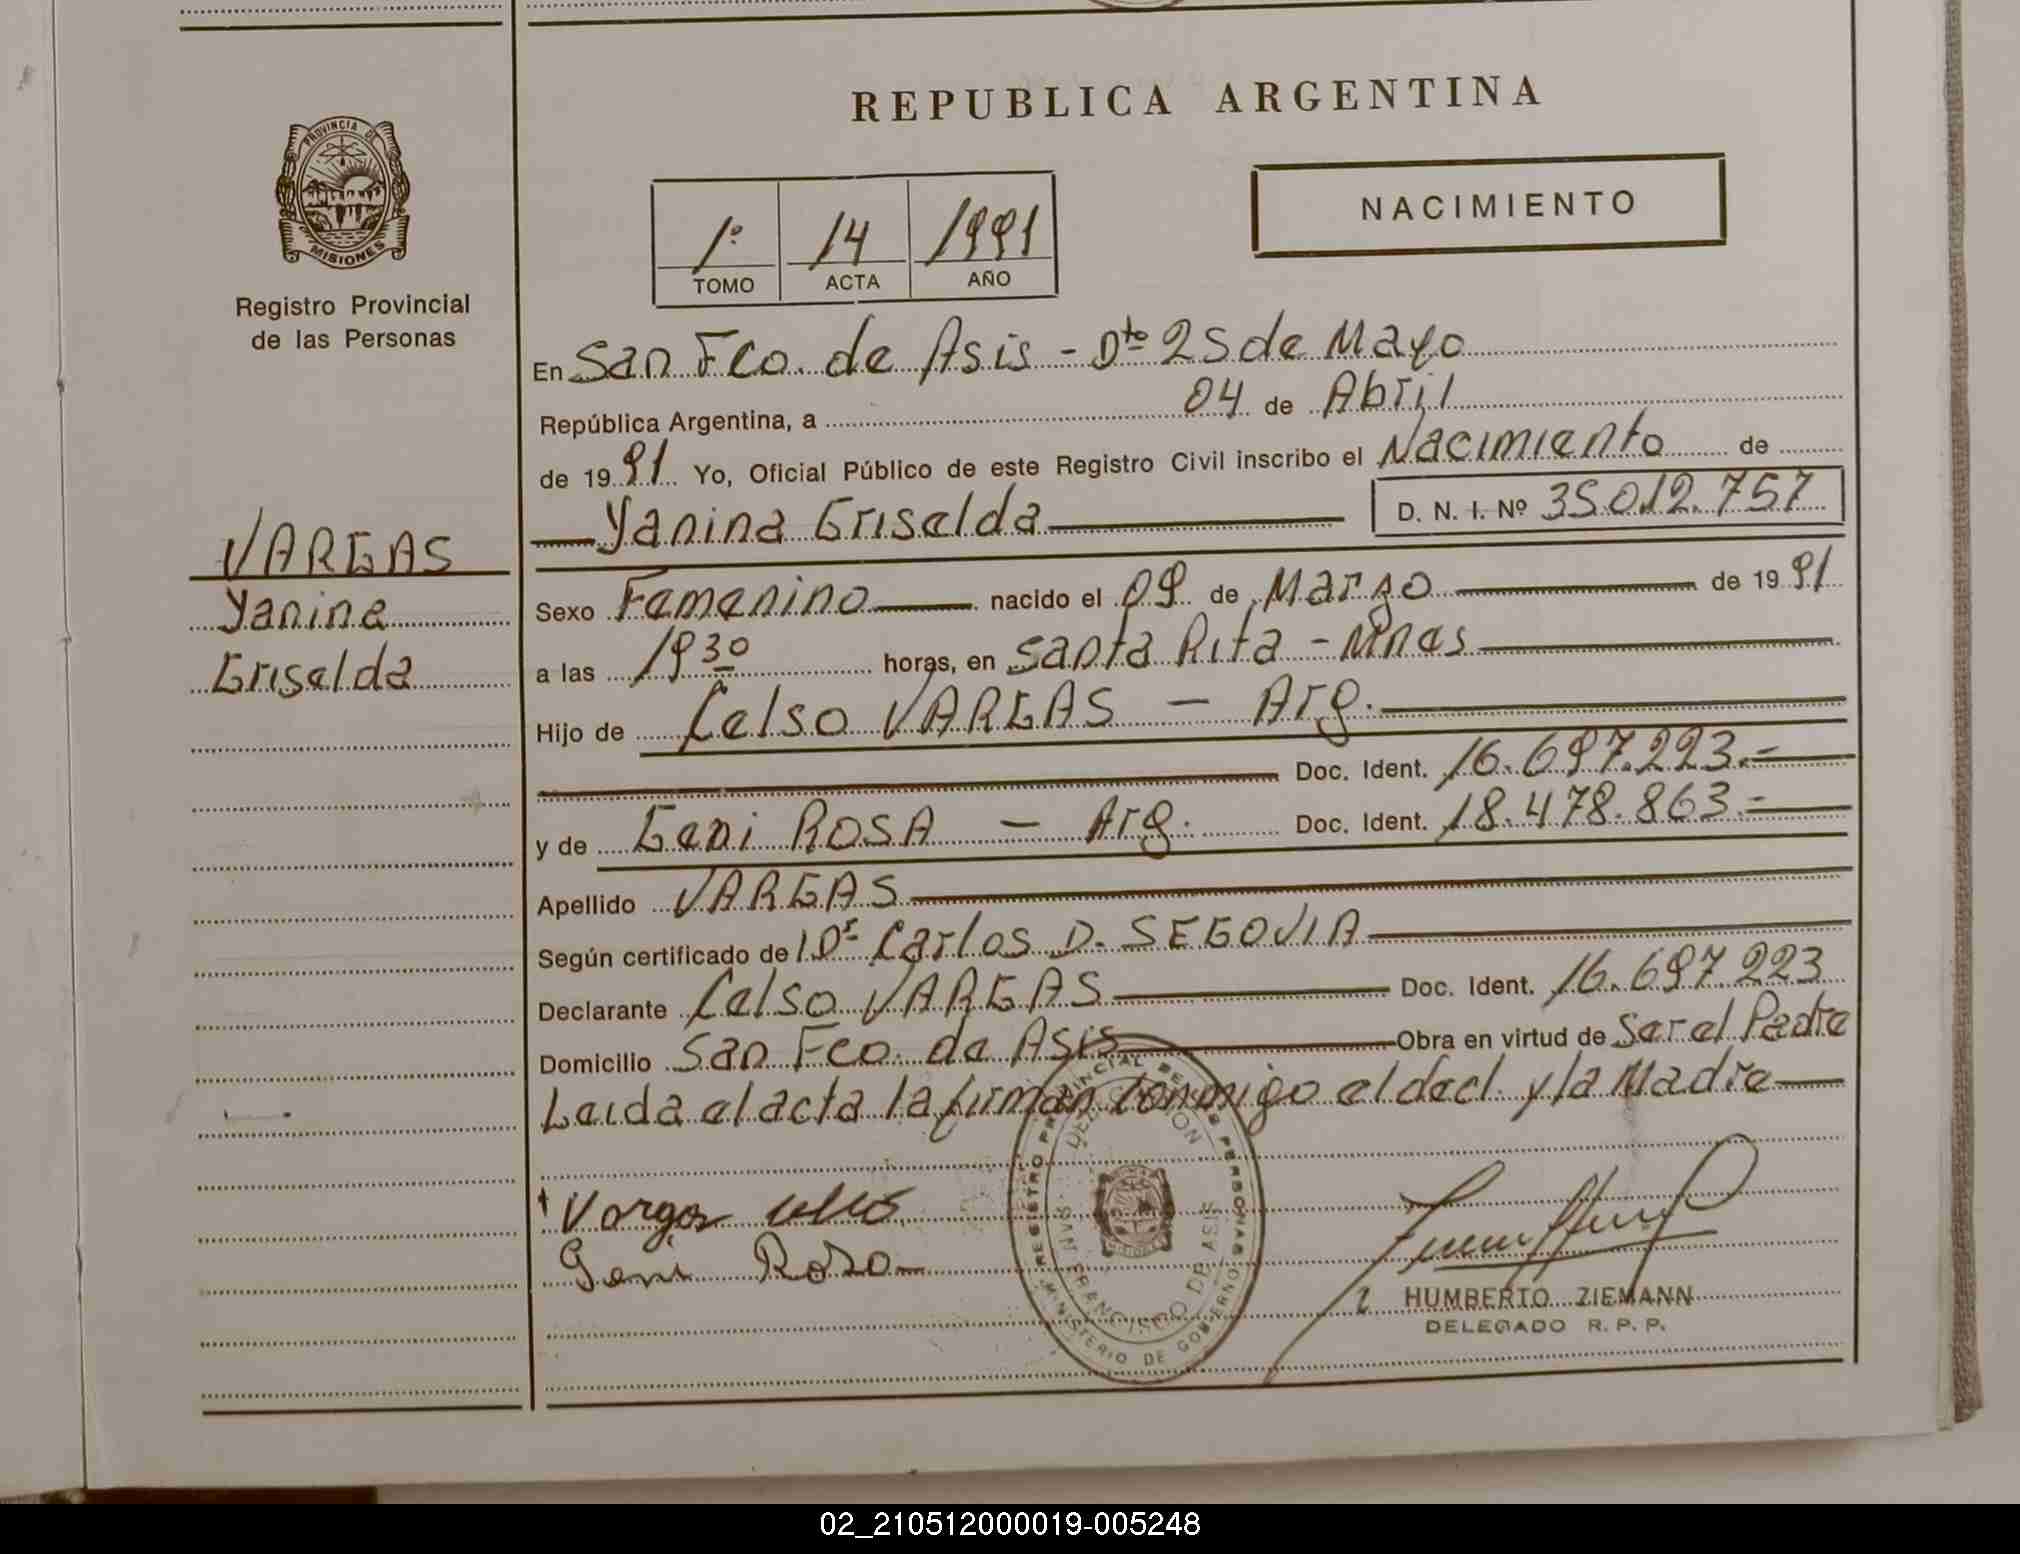 REPUBLICA ARGENTINA
PROVINCIA DE
MISIONES
Registro Provincial
de las Personas
1º 14 1991
TOMO ACTA AÑO
NACIMIENTO
En San Fco. de Asis - Dto 25 de Mayo
República Argentina, a 04 de Abril
de 1991 Yo, Oficial Público de este Registro Civil inscribo el Nacimiento de
Yanina Griselda D. N. I. Nº 35.012.757
VARGAS
Yanina
Griselda
Sexo Femenino nacido el 09 de Marzo de 1991
a las 19 30 horas, en Santa Rita - Mnes
Hijo de Celso VARGAS - Arg.
Doc. Ident. 16.697.223.-
y de Geni ROSA - Arg. Doc. Ident. 18.478.863.-
Apellido VARGAS
Según certificado de Dr Carlos D. SEGOVIA
Declarante Celso VARGAS Doc. Ident. 16.697.223
Domicilio San Fco. de Asis Obra en virtud de Ser el Padre
Leida el acta la firman conmigo el decl. y la Madre
Vargas
Geni Rosa
REGISTRO PROVINCIAL DE LAS PERSONAS
MINISTERIO DE GOBIERNO
DELEGACION
SAN FRANCISCO DE ASIS
HUMBERTO ZIEMANN
DELEGADO R. P. P.
02_210512000019-005248